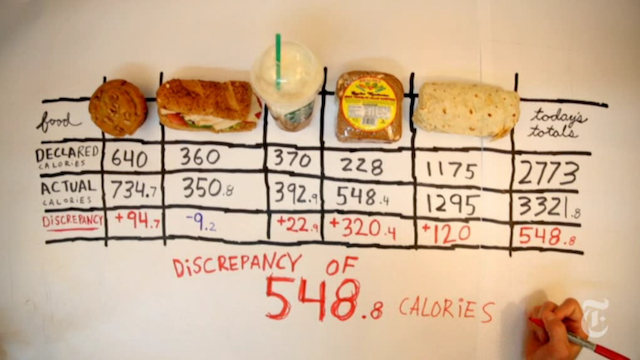 food today's totals
DECLARED CALORIES 640 360 370 228 1175 2773
ACTUAL CALORIES 734.7 350.8 392.9 548.4 1295 3321.8
DISCREPANCY +94.7 -9.2 +22.9 +320.4 +120 548.8
DISCREPANCY OF
548.8 CALORIES
T